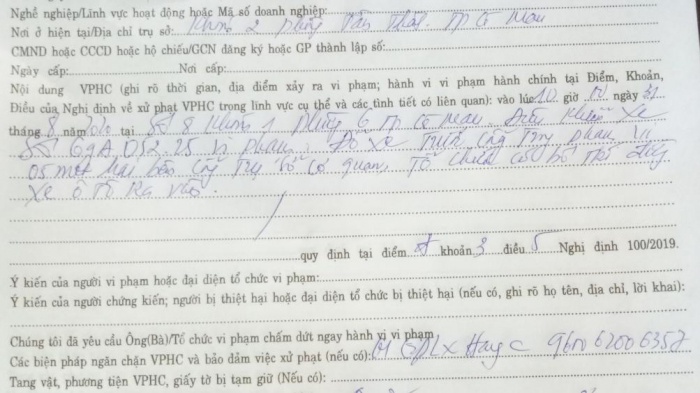 Nghề nghiệp/Lĩnh vực hoạt động hoặc Mã số doanh nghiệp:
Nơi ở hiện tại/Địa chỉ trụ sở: Khóm 2 phường Tân Thành TP Cà Mau
CMND hoặc CCCD hoặc hộ chiếu/GCN đăng ký hoặc GP thành lập số:
Ngày cấp: Nơi cấp:
Nội dung VPHC (ghi rõ thời gian, địa điểm xảy ra vi phạm; hành vi vi phạm hành chính tại Điểm, Khoản,
Điều của Nghị định về xử phạt VPHC trong lĩnh vực cụ thể và các tình tiết có liên quan): vào lúc 10 giờ 10 ngày 31
tháng 8 năm 2020 tại số 8 Khóm 1 phường 6 TP Cà Mau Điều khiển xe
số 69A 052.25 vi phạm: Đỗ xe trước cổng phạm vi
05 mét hai bên cổng trụ sở cơ quan, Tổ chức có bố trí đường
xe ô tô Ra vào.
quy định tại điểm khoản 3 điều 5 Nghị định 100/2019.
Ý kiến của người vi phạm hoặc đại diện tổ chức vi phạm:
Ý kiến của người chứng kiến; người bị thiệt hại hoặc đại diện tổ chức bị thiệt hại (nếu có, ghi rõ họ tên, địa chỉ, lời khai):
Chúng tôi đã yêu cầu Ông(Bà)/Tổ chức vi phạm chấm dứt ngay hành vi vi phạm
Các biện pháp ngăn chặn VPHC và bảo đảm việc xử phạt (nếu có): GPLX Hạng C
Tang vật, phương tiện VPHC, giấy tờ bị tạm giữ (Nếu có):